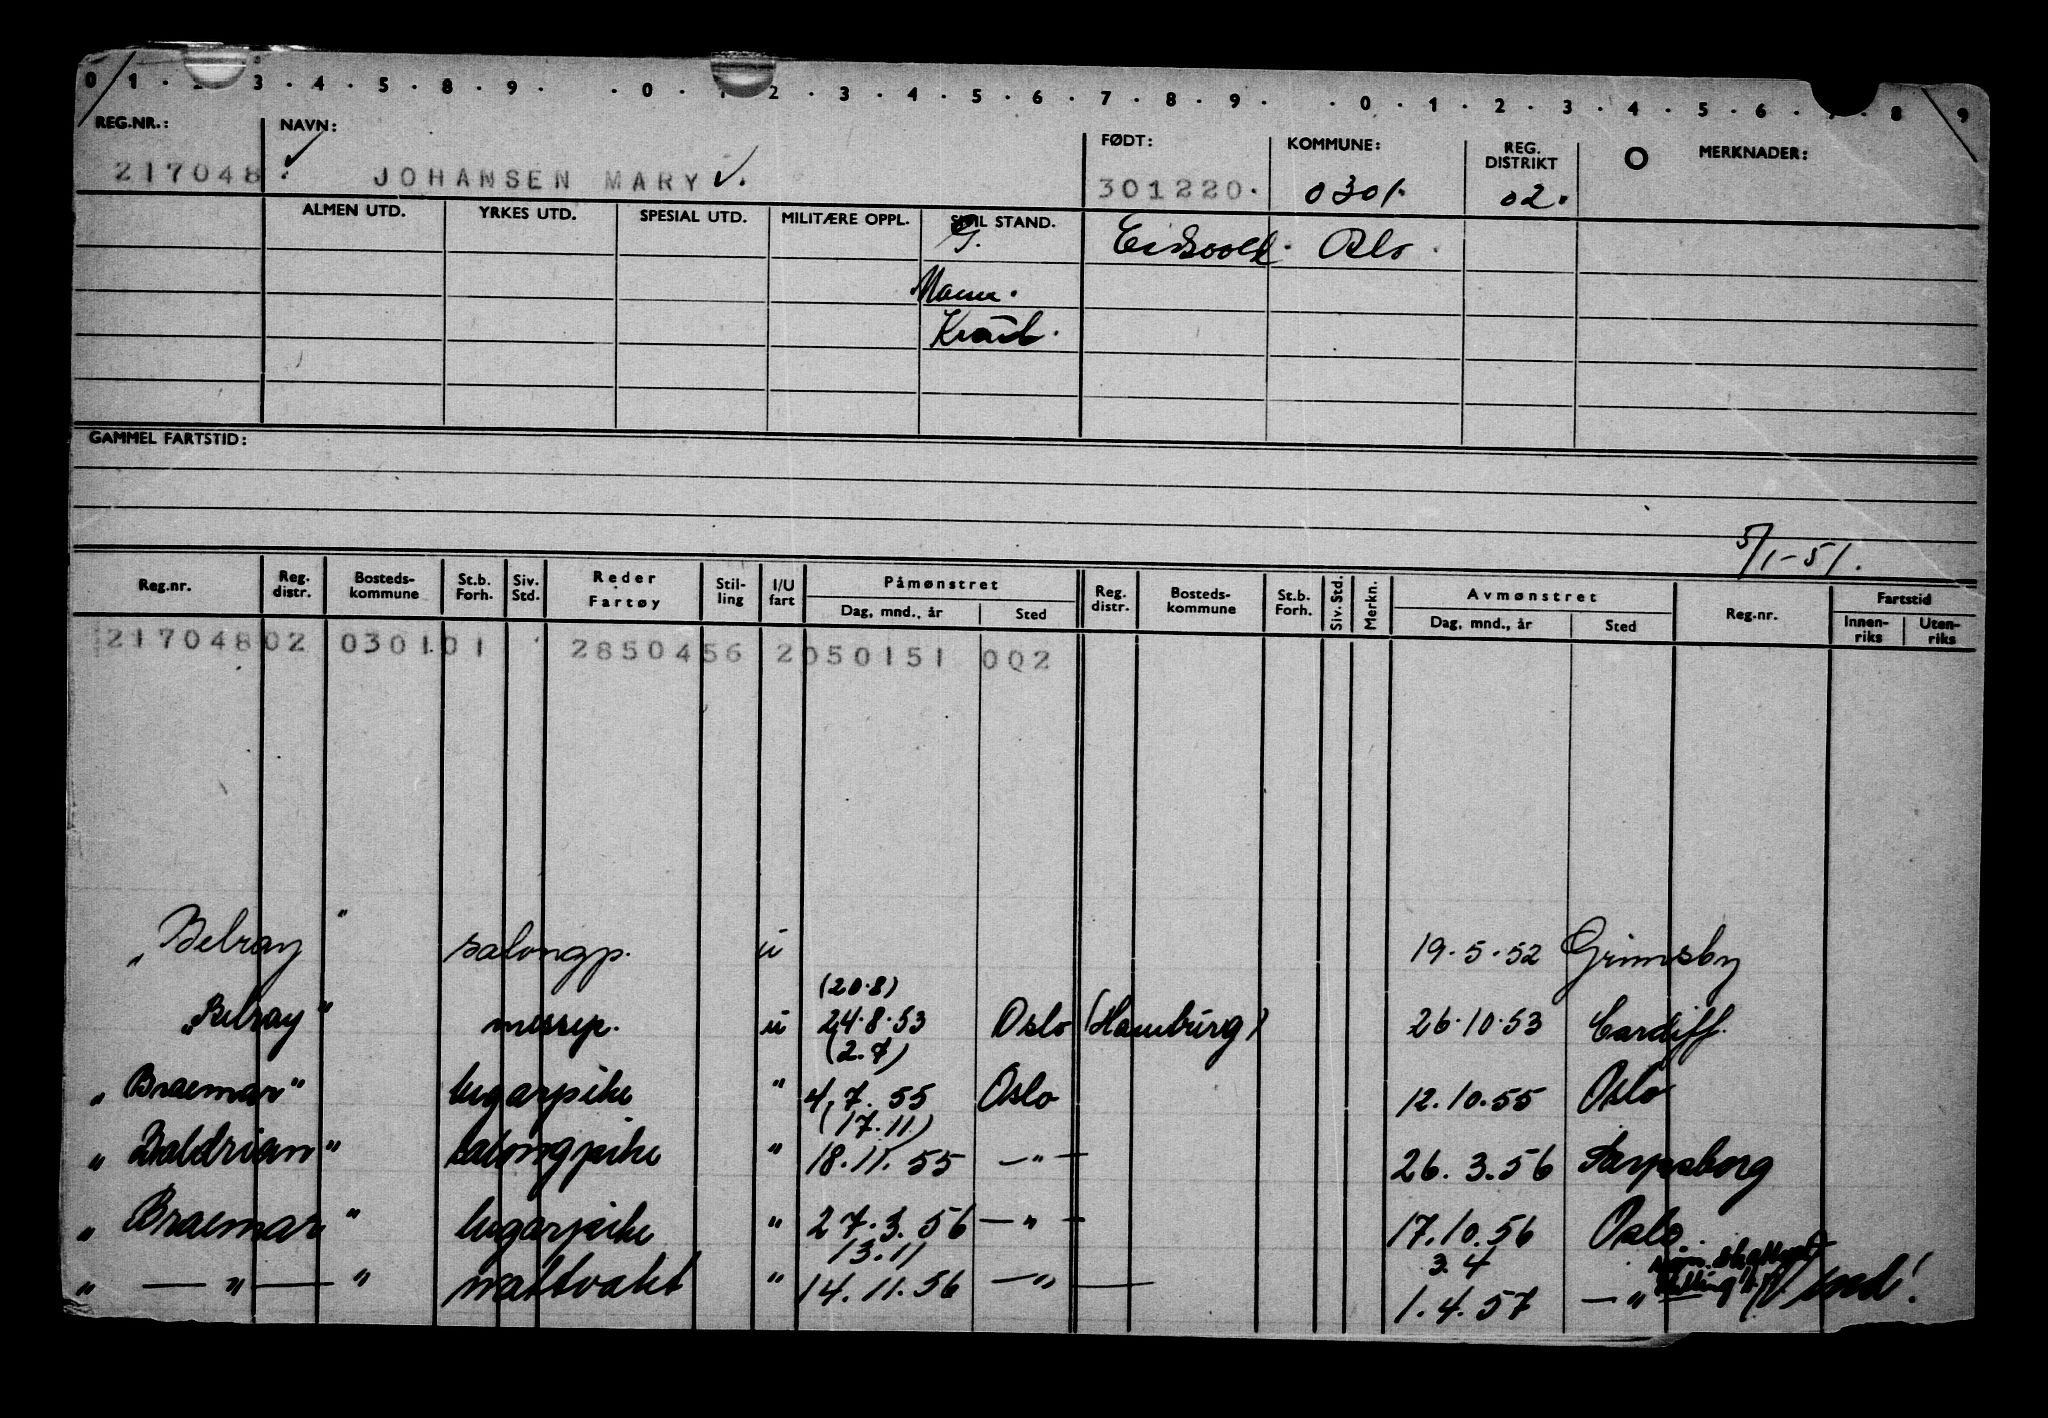 0 1 . 2 . 3 . 4 . 5 . 8 . 9 . . 0 . 1 . 2 . 3 . 4 . 5 . 6 . 7 . 8 . 9 . . 0 . 1 . 2 . 3 . 4 . 5 . 6 . 7 . 8 . 9
REG.NR.: NAVN: FØDT: KOMMUNE: REG. DISTRIKT O MERKNADER:
217048. JOHANSEN MARY 301220. 0301. 02.
ALMEN UTD. YRKES UTD. SPESIAL UTD. MILITÆRE OPPL. SIVIL STAND.
G. Eidsvold. Oslo.
GAMMEL FARTSTID:
5/1-51.
Reg.nr. Reg. distr. Bosteds-kommune St.b. Forh. Siv. Std. Reder Fartøy Stil-ling I/U fart Påmønstret Dag, mnd., år Sted Reg. distr. Bosteds-kommune St.b. Forh. Siv. Std. Merkn. Avmønstret Dag, mnd., år Sted Reg.nr. Fartstid Innen-riks Uten-riks
21704802 030101 2850456 2050151 002
„Belray" salongp. u 19.5.52 Grimsby
(20.8)
„Belray" messep. u 24.8.53 Oslo (Hamburg) 26.10.53 Cardiff.
(2.7)
„Braemar" lugarpike " 4.7.55 Oslo 12.10.55 Oslo
(17.11)
„Baldrian" salongpike " 18.11.55 —"— 26.3.56 Sarpsborg
„Braemar" lugarpike " 27.3.56 —"— 17.10.56 Oslo
13.11 3.4
„—"—" nattvakt " 14.11.56 —"— 1.4.57 —"— Vend!